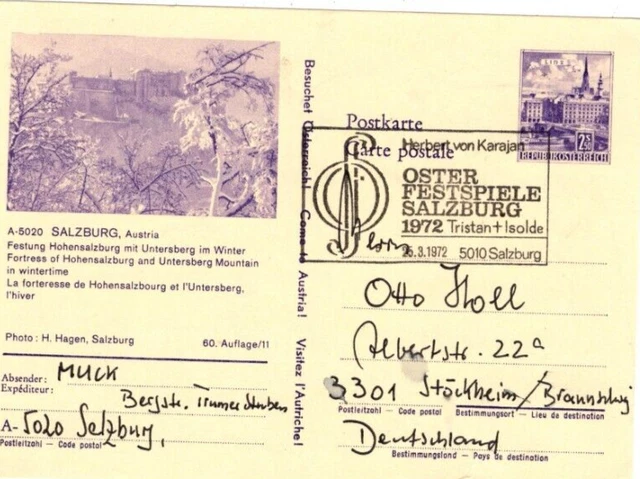 A-5020 SALZBURG, Austria
Festung Hohensalzburg mit Untersberg im Winter
Fortress of Hohensalzburg and Untersberg Mountain
in wintertime
La forteresse de Hohensalzbourg et l'Untersberg,
l'hiver
Photo: H. Hagen, Salzburg 60. Auflage/11
Absender: MUCK
Expéditeur:
Bergstr. Trumer Stuben
A-5020 Salzburg,
Postleitzahl - Code postal
Besuchet Österreich! Come to Austria! Visitez l'Autriche!
LINZ
2.50
REPUBLIK ÖSTERREICH
Postkarte
Carte postale
Herbert von Karajan
OSTER
FESTSPIELE
SALZBURG
1972 Tristan+Isolde
25.3.1972 5010 Salzburg
Herrn
Otto Holl
Albertstr. 22a
3301 Stöckheim/Braunschwg
Postleitzahl - Code postal Bestimmungsort - Lieu de destination
Deutschland
Bestimmungsland - Pays de destination